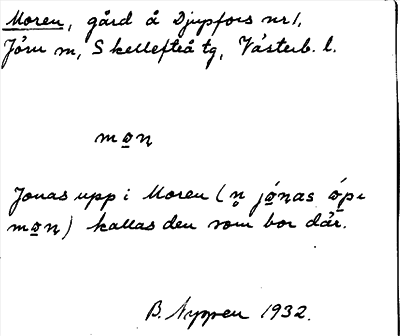 Moren, gård å Djupfors nr 1,
Jörn sn, Skellefteå tg, Västerb. l.
mo̲n
Jonas upp i Moren (n̥ jó̲nas ó̲pı
mo̲n) kallas den som bor där.
B. Nyppen 1932.